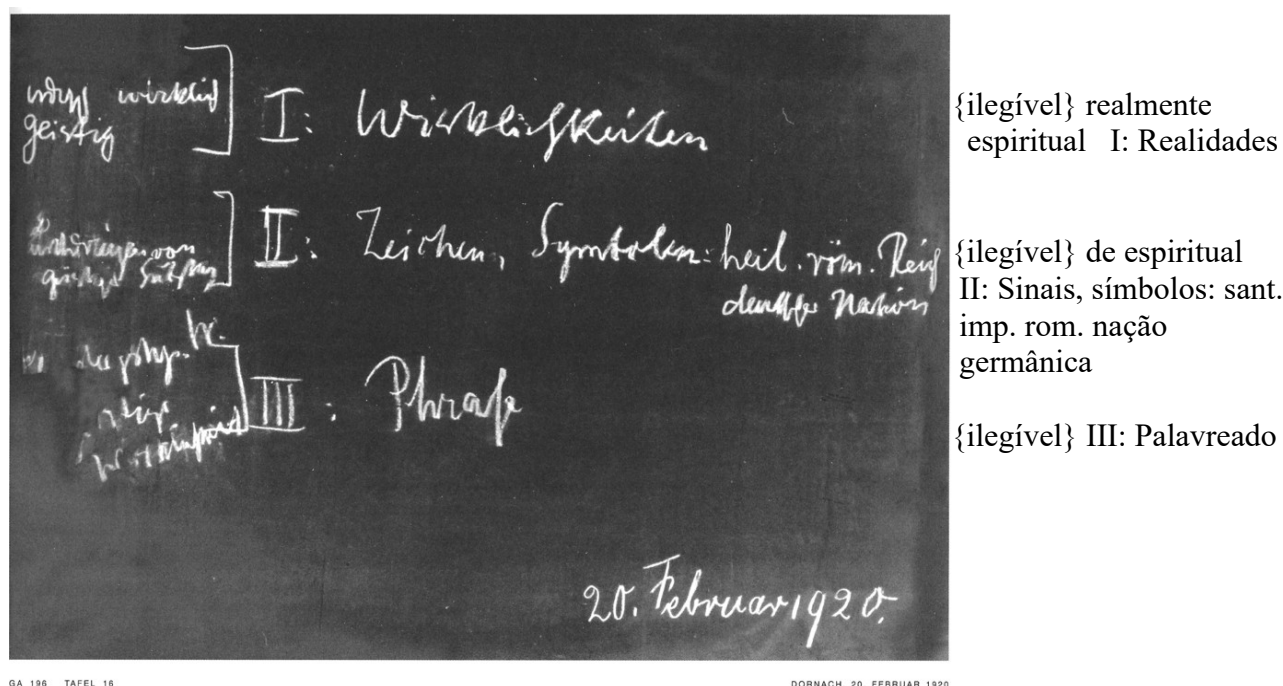 wirklich
geistig
I: Wirklichkeiten
II: Zeichen, Symbolen: heil. röm. Reich
deutscher Nation
von
III: Phrase
20. Februar 1920.
GA 196 TAFEL 16
DORNACH, 20. FEBRUAR 1920
{ilegível} realmente
espiritual I: Realidades
{ilegível} de espiritual
II: Sinais, símbolos: sant.
imp. rom. nação
germânica
{ilegível} III: Palavreado